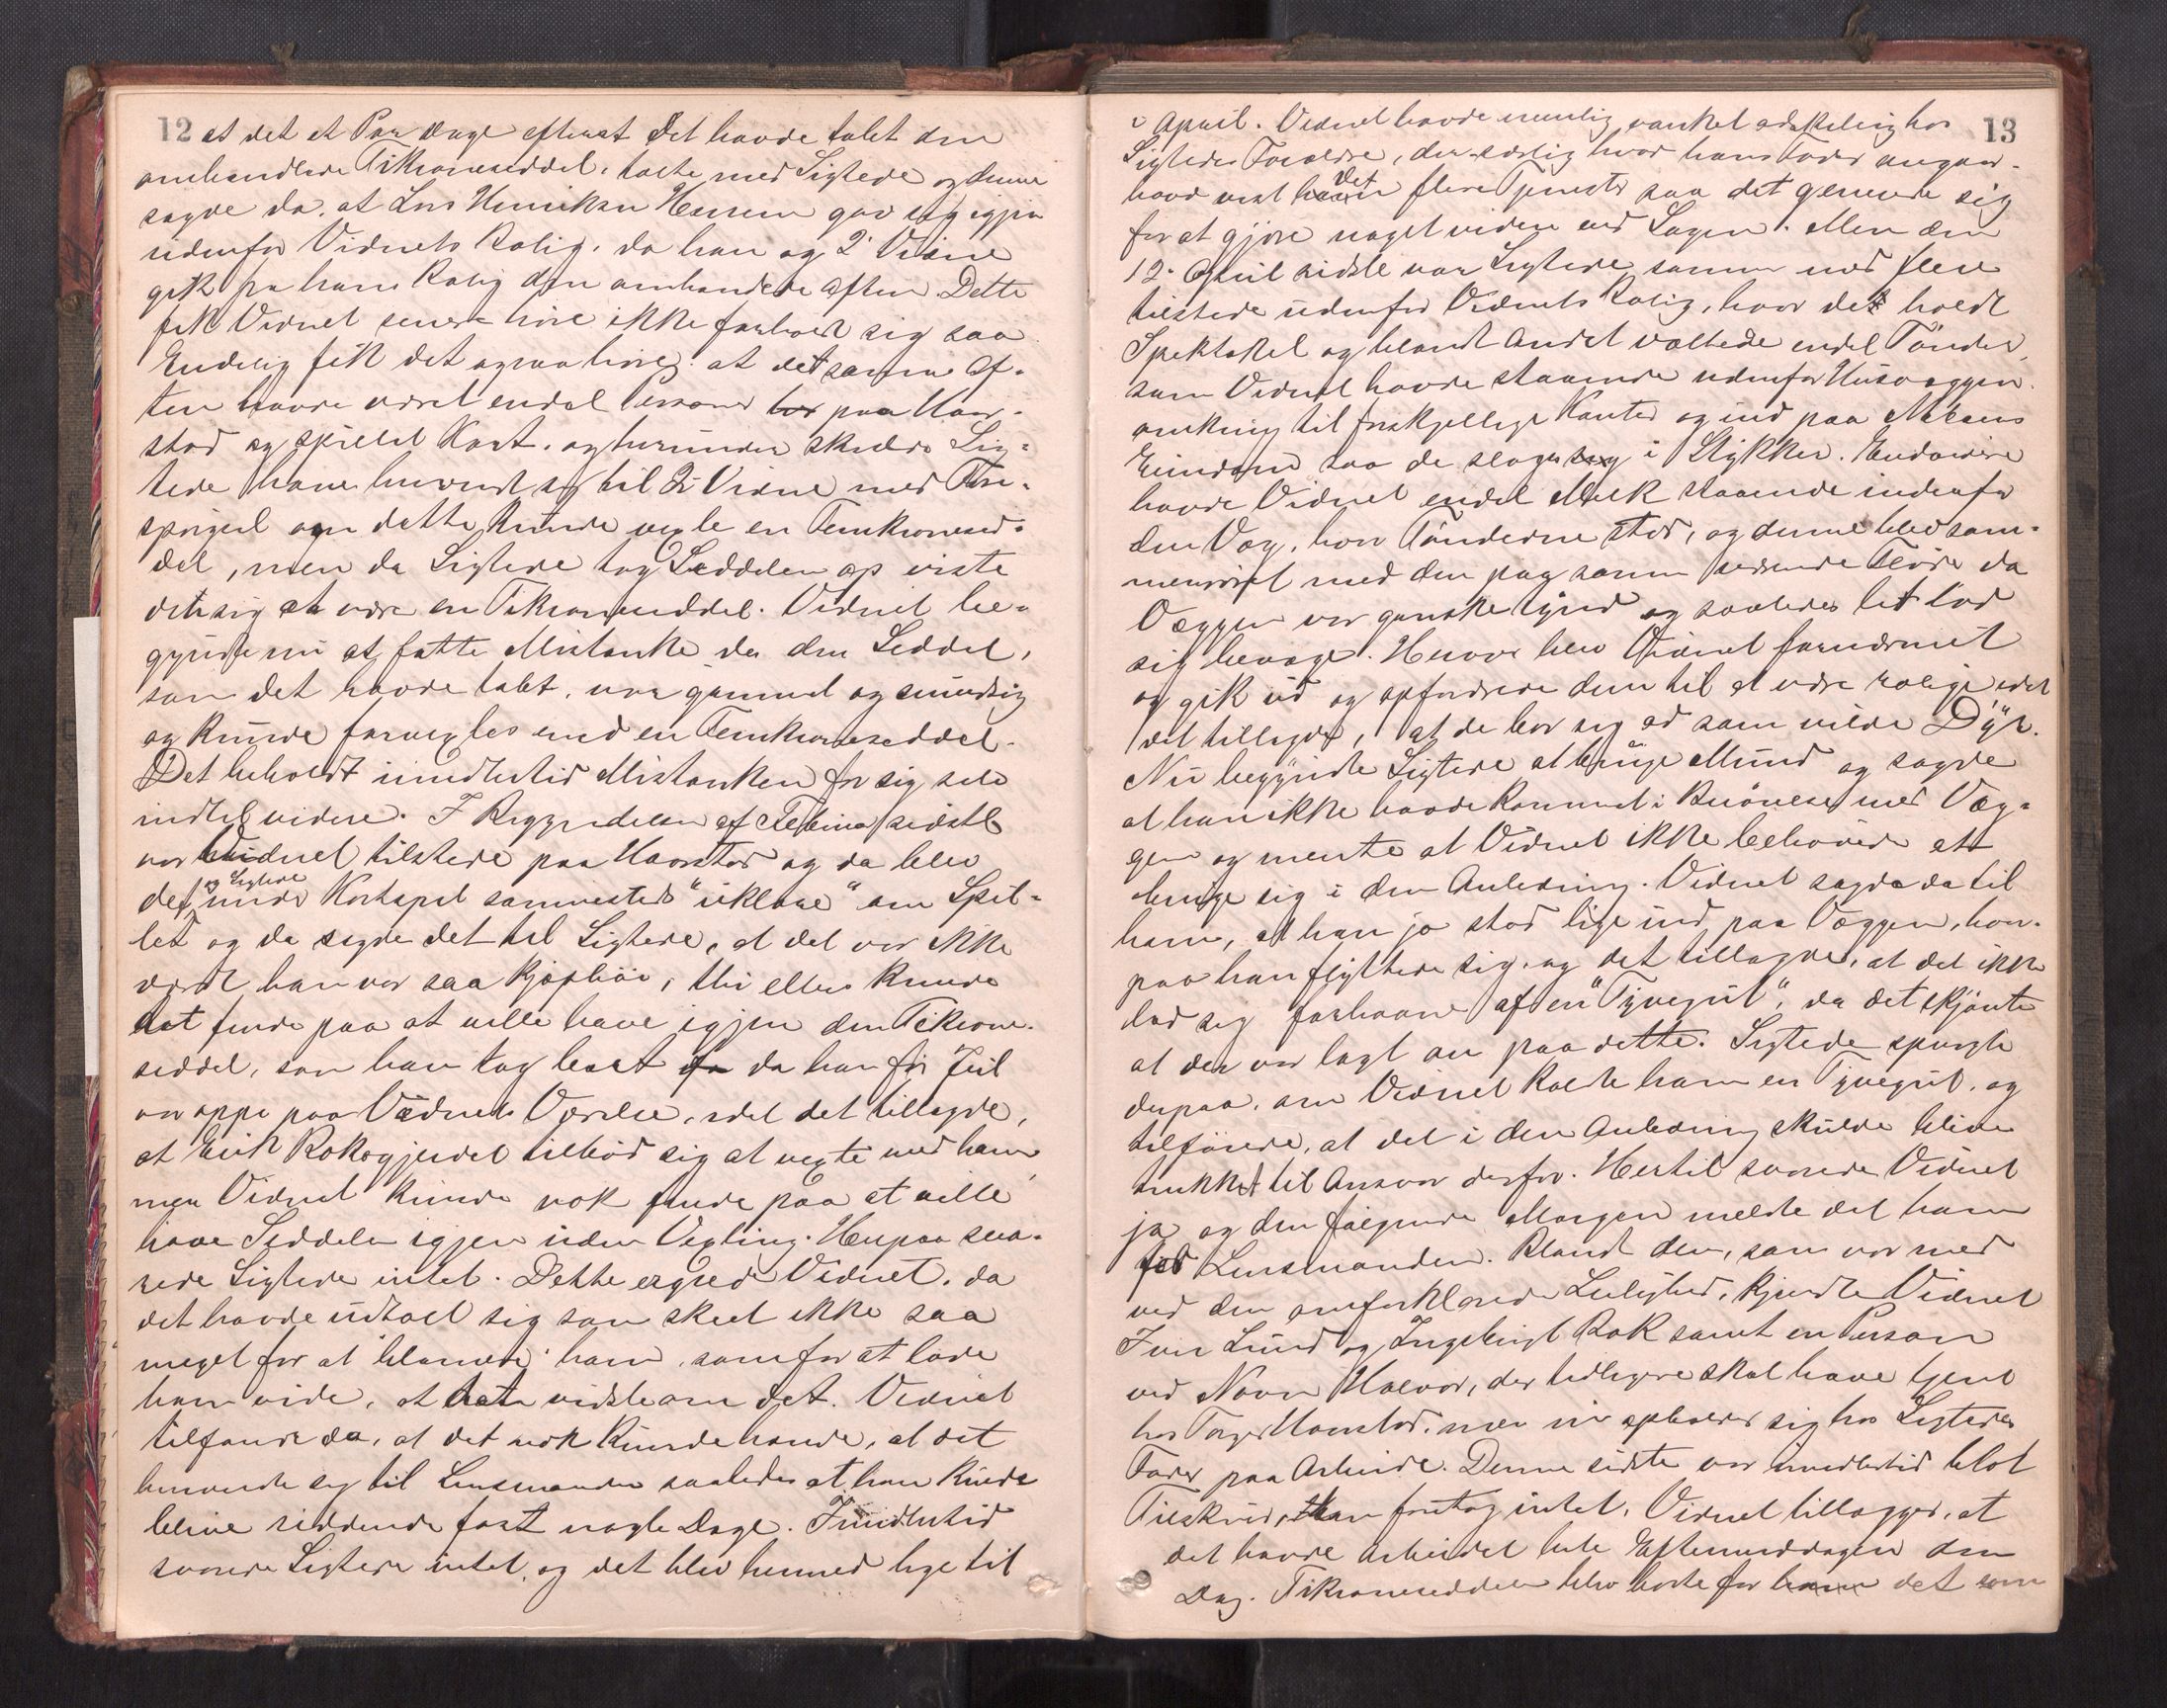 12
at det et Par Dage efterat det havde tabt den
omhandlede Tikroneseddel, talte med Sigtede og denne
sagde da, at Lars Henriksen gav sig igjen
udenfor Vidnets Bolig, da han og 2' Vidne
gik fra hans Bolig den omhandlede Aften. Dette
fik Vidnet senere høre ikke forholdt sig saa
Endelig fik det ogsaa høre, at det samme Af-
ten havde været endel Personer paa Haar-
stad og spillet Kort, og herunder skulde Sig-
tede have henvendt sig til 2' Vidne med Fore-
spørgsel om dette kunde vexle en Femkronesed-
del, men da Sigtede tog Seddelen op viste
det sig at være en Tikroneseddel. Vidnet be-
gyndte nu at fatte Mistanke da den Seddel,
som det havde tabt, var gammel og smudsig
og kunde forvexles med en Femkroneseddel.
Det beholdt imidlertid Mistanken for sig selv
indtil videre. I Begyndelsen af Februar sidstl
var Vidnet tilstede paa Haarstad og da blev
det og Sigtede under Kortspil sammesteds "uklare" om Spil-
let og da sagde det til Sigtede, at det var ikke
værdt han var saa kjephøi, thi ellers kunde
det finde paa at ville have igjen den Tikrone-
seddel, som han tog bort da han før Jul
var oppe paa Vidnets Værelse, idet det tillagde,
at Erik Roksgjerdet tilbød sig at vexle med ham
men Vidnet kunde nok finde paa at ville
have Seddelen igjen uden Vexling. Herpaa sva-
rede Sigtede intet. Dette ærgrede Vidnet, da
det havde udtalt sig som skeet ikke saa
meget for at "blamere" ham, som for at lade
ham vide, at det vidste om det. Vidnet
tilføiede da, at det nok kunde hænde, at det
henvendte sig til Lensmanden saaledes at han kunde
blive siddende fast nogle Dage. Imidlertid
svarede Sigtede intet, og det blev hermed lige til
13
i April. Vidnet havde nemlig vanket adskillig hos
Sigtedes Forældre, der særlig hvad hans Fader angaar-
havde vist det flere Tjenester saa det generede sig
for at gjøre noget videre ved Sagen. Men den
12' April sidstl var Sigtede sammen med flere
tilstede udenfor Vidnets Bolig, hvor de holdt
Spektakel og blandt Andet væltede endel Tønder,
som Vidnet havde staaende udenfor Husvæggen
omkring til forskjellige Kanter og ind paa Naboens
Eiendom saa de sloges i Stykker. Endvidere
havde Vidnet endel Melk staaende indenfor
den Væg, hvor Tønderne stod, og denne blev sam-
menrørt med den paa samme værende Fløde da
Væggen var ganske tynd og saaledes let lod
sig bevæge. Herover blev Vidnet fornærmet
og gik ud og opfordrede dem til at være rolige idet
det tillagde, at de bar sig ad som vilde Dyr.
Nu begyndte Sigtede at bruge Mund og sagde
at han ikke havde kommet i Berørelse med Væg-
gen og mente at Vidnet ikke behøvede at
bruge sig i den Anledning. Vidnet sagde da til
ham, at han jo stod lige ind paa Væggen, hvor-
paa han flyttede sig, og det tillagde, at det ikke
lod sig forhaane af en "Tyvegut", da det skjønte
at der var lagt an paa dette. Sigtede spurgte
derpaa, om Vidnet kaldte ham en Tyvegut, og
tilføiede, at det i den Anledning skulde blive
trukket til Ansvar derfor. Hertil svarede Vidnet
ja og den følgende Morgen meldte det ham
for Lensmanden. Blandt dem, som var med
ved den omforklarede Leilighed, kjendte Vidnet
Iver Lund og Ingebrigt Rok samt en Person
ved Navn Halvor, der tidligere skal have tjent
hos Haarstad, men nu opholder sig hos Sigtedes
Fader paa Arbeide. Denne sidste var imidlertid blot
Tilskuer, han foretog intet. Vidnet tillægger, at
det havde arbeidet hele Eftermiddagen den
Dag. Tikroneseddelen blev borte for det som